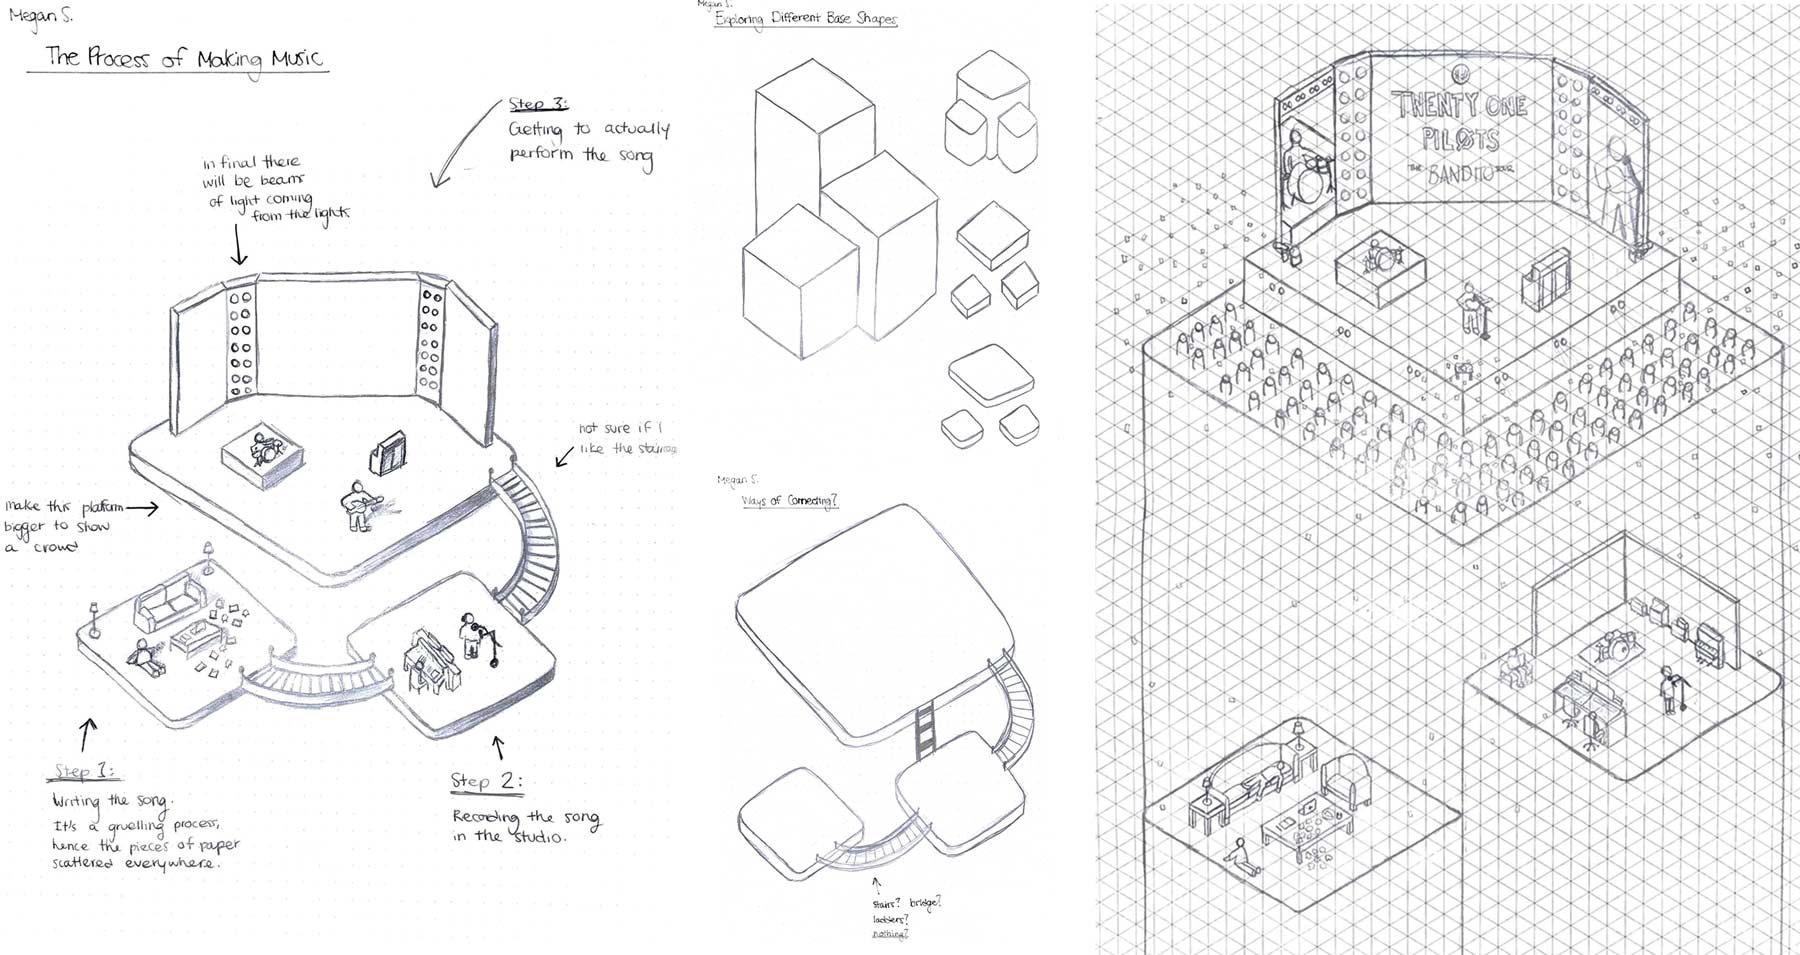 Megan S.
The Process of Making Music
Step 3:
Getting to actually
perform the song
in final there
will be beams
of light coming
from the lights
not sure if I
like the staircase
make this platform
bigger to show
a crowd
Step 1:
Writing the song.
It's a gruelling process,
hence the pieces of paper
scattered everywhere.
Step 2:
Recording the song
in the studio.
Megan S.
Exploring Different Base Shapes
Megan S.
Ways of Connecting?
stairs? bridge?
ladders?
nothing?
TWENTY ONE
PILØTS
THE BANDITO TOUR